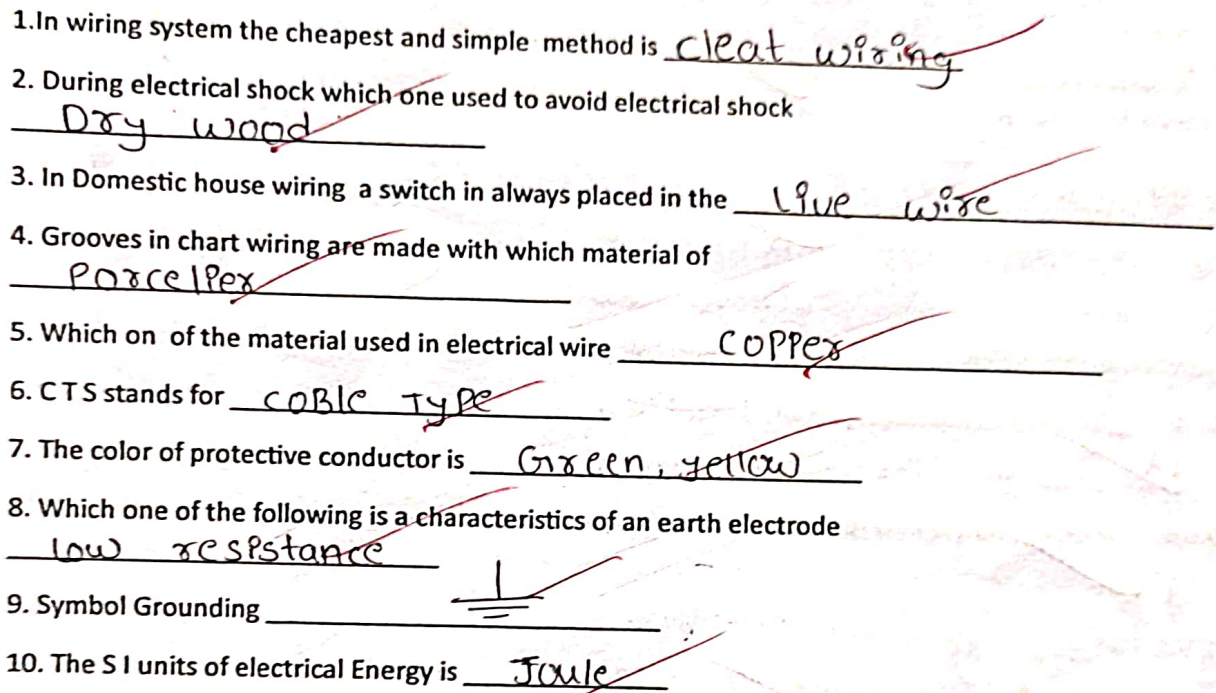 1.In wiring system the cheapest and simple method is cleat wiring
2. During electrical shock which one used to avoid electrical shock
Dry wood
3. In Domestic house wiring a switch in always placed in the live wire
4. Grooves in chart wiring are made with which material of
Porcelier
5. Which on of the material used in electrical wire copper
6. C T S stands for coble Type
7. The color of protective conductor is Green, yellow
8. Which one of the following is a characteristics of an earth electrode
low resistance
9. Symbol Grounding
10. The S I units of electrical Energy is Joule